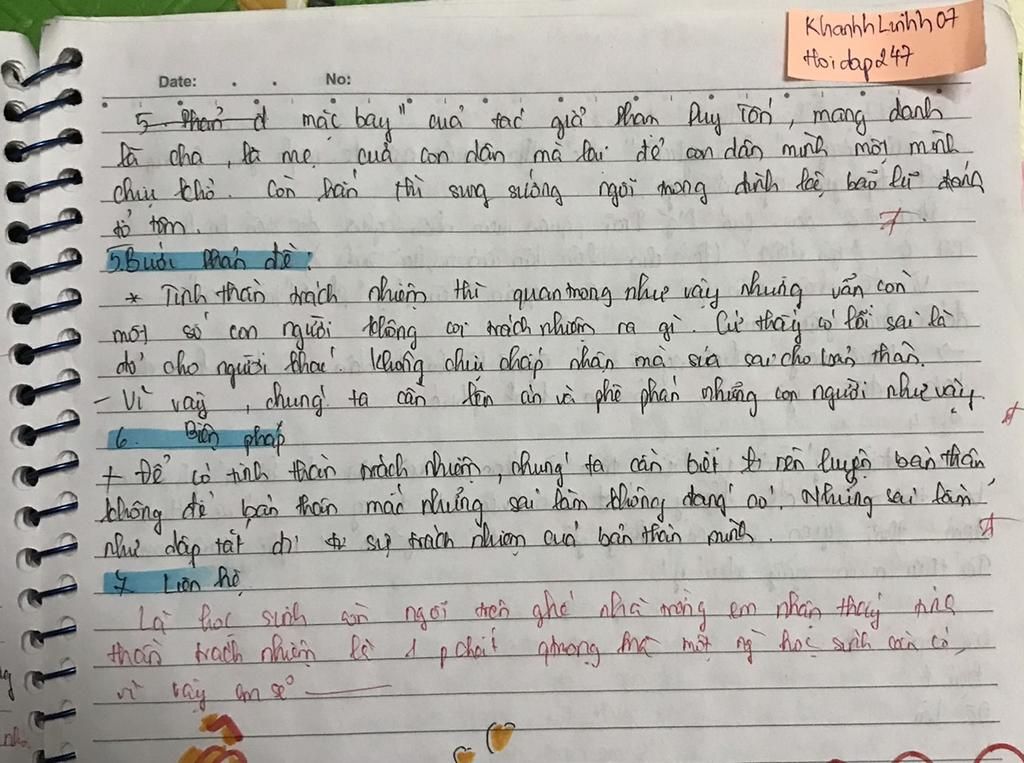 KhanhhLuihh07
Hoidap247
Date: . . No:
5 Phản đ mặc bay" của tác giả Phan Duy Tốn, mang danh
là cha, là mẹ của con dân mà lại để con dân mình một mình
chịu khổ. Còn hắn thì sung sướng ngồi trong đình
tổ tôm.
5. Bước phản đề:
* Tinh thần trách nhiệm thì quan trọng như vậy nhưng vẫn còn
một số con người không coi trách nhiệm ra gì. Cứ thấy có lỗi sai là
đổ cho người khác. Không chịu chấp nhận mà sửa sai cho bản thân.
- Vì vậy, chúng ta cần lên án và phê phán những con người như vậy.
6. Biện pháp
+ Để có tinh thần trách nhiệm, chúng ta cần biết rèn luyện bản thân
không để bản thân mắc những sai lầm không đáng có. Những sai lầm
như dập tắt đi sự trách nhiệm của bản thân mình.
7 Liên hệ
Là học sinh còn ngồi trên ghế nhà trường em nhận thấy tinh
thần trách nhiệm là 1 p chất qtrọng mà một ng học sinh cần có,
vì vậy em sẽ